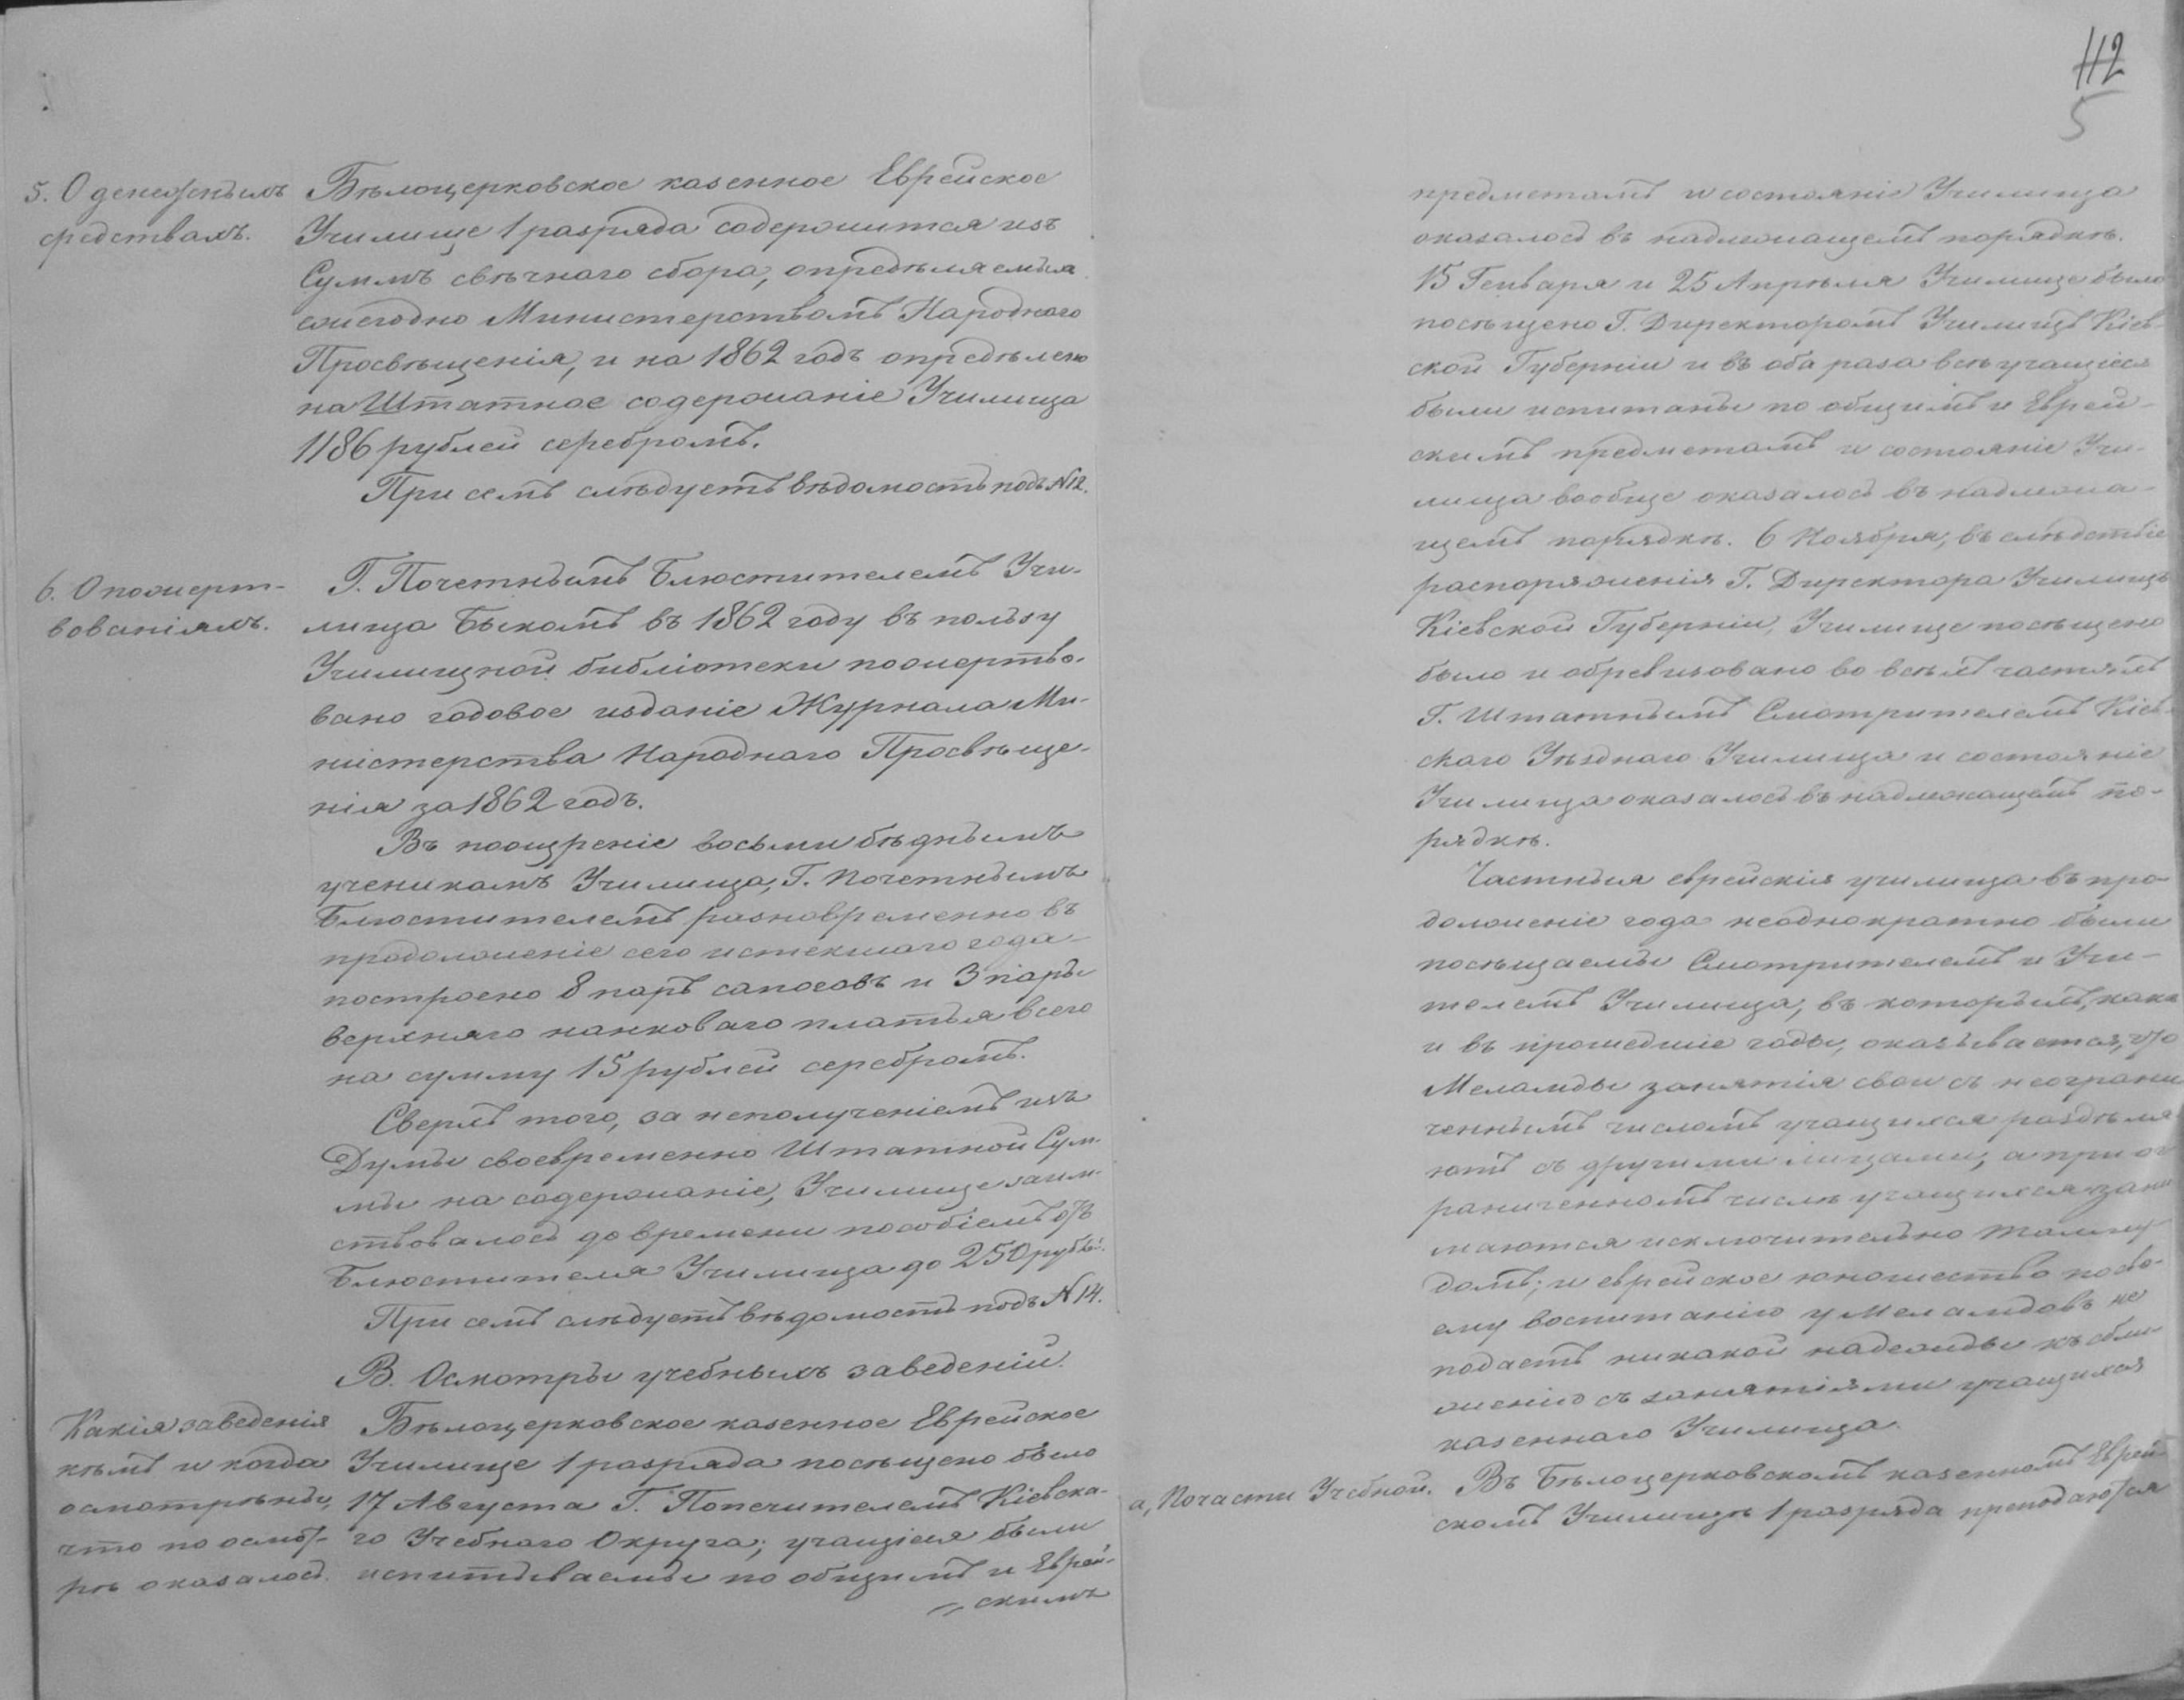 5. О денежныхъ
средствахъ.
Бѣлоцерковское казенное Еврейское
Училище 1 разряда содержится изъ
Суммъ свѣчнаго сбора, опредѣляемыхъ
ежегодно Министерствомъ Народнаго
Просвѣщенія, и на 1862 годъ опредѣлено
на Штатное содержаніе Училища
1186 рублей серебромъ.
При семъ слѣдуетъ вѣдомость подъ №12.
6. О пожерт-
вованіяхъ.
Г. Почетнымъ Блюстителемъ Учи-
лища Быкомъ въ 1862 году въ пользу
Училищной библіотеки пожертво-
вано годовое изданіе Журнала Ми-
нистерства Народнаго Просвѣще-
нія за 1862 годъ.
Въ поощреніе восьми бѣднымъ
ученикамъ Училища, Г. Почетнымъ
Блюстителемъ разновременно въ
продолженіе сего истекшаго года
построено 8 паръ сапоговъ и 3 пары
верхняго нанковаго платья всего
на сумму 15 рублей серебромъ.
Сверхъ того, за неполученіемъ изъ
Думы своевременно Штатной Сум-
мы на содержаніе, Училище заим-
ствовалось до времени пособіемъ отъ
Блюстителя Училища до 250 рублей.
При семъ слѣдуетъ вѣдомость подъ №14.
В. Осмотры учебныхъ заведеній.
Какія заведенія
кѣмъ и когда
осмотрѣны,
что по осмот-
рѣ оказалось.
Бѣлоцерковское казенное Еврейское
Училище 1 разряда посѣщено было
17 Августа Г. Попечителемъ Кіевска-
го Учебнаго Округа; учащіеся были
испытываемы по общимъ и Еврей-
скимъ
112
5
предметамъ и состояніе Училища
оказалось въ надлежащемъ порядкѣ.
15 Генваря и 25 Апрѣля Училище было
посѣщено Г. Директоромъ Училищъ Кіев-
ской Губерніи и въ оба раза всѣ учащіеся
были испытаны по общимъ и Еврей-
скимъ предметамъ и состояніе Учи-
лища вообще оказалось въ надлежа-
щемъ порядкѣ. 6 Ноября, въ слѣдствіе
распоряженія Г. Директора Училищъ
Кіевской Губерніи, Училище посѣщено
было и обревизовано во всѣхъ частяхъ
Г. Штатнымъ Смотрителемъ Кіев-
скаго Уѣзднаго Училища и состояніе
Училища оказалось въ надлежащемъ по-
рядкѣ.
Частныя еврейскія училища въ про-
долженіе года неоднократно были
посѣщаемы Смотрителемъ и Учи-
телемъ Училища, въ которыхъ, какъ
и въ прошедшіе годы, оказывается, что
Меламды занятія свои съ неограни
ченнымъ числомъ учащихся раздѣля
ютъ съ другими лицами, а при ог
раниченномъ числѣ учащихся зани
маются исключительно талму-
домъ; и еврейское юношество по сво-
ему воспитанію у Меламдовъ не
подаетъ никакой надежды къ сбли
женію съ занятіями учащихся
казеннаго Училища.
а, По части Учебной.
Въ Бѣлоцерковскомъ казенномъ Еврей-
скомъ Училищѣ 1 разряда преподаются